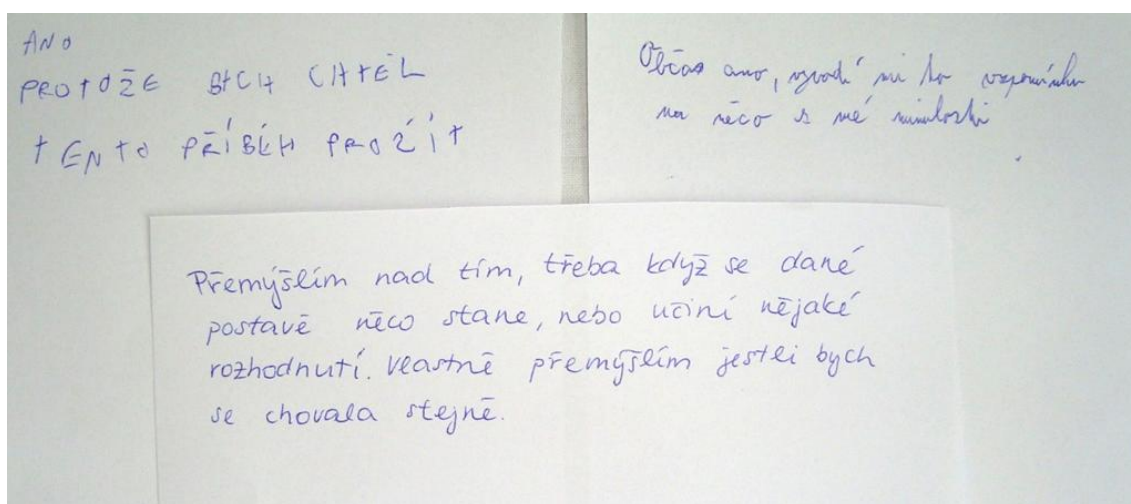 ANO
PROTOŽE BYCH CHTĚL
TENTO PŘÍBĚH PROŽÍT
Občas ano, vyvodí mi to vzpomínku
na něco s mé minulosti
Přemýšlím nad tím, třeba když se dané
postavě něco stane, nebo učiní nějaké
rozhodnutí. Vlastně přemýšlím jestli bych
se chovala stejně.